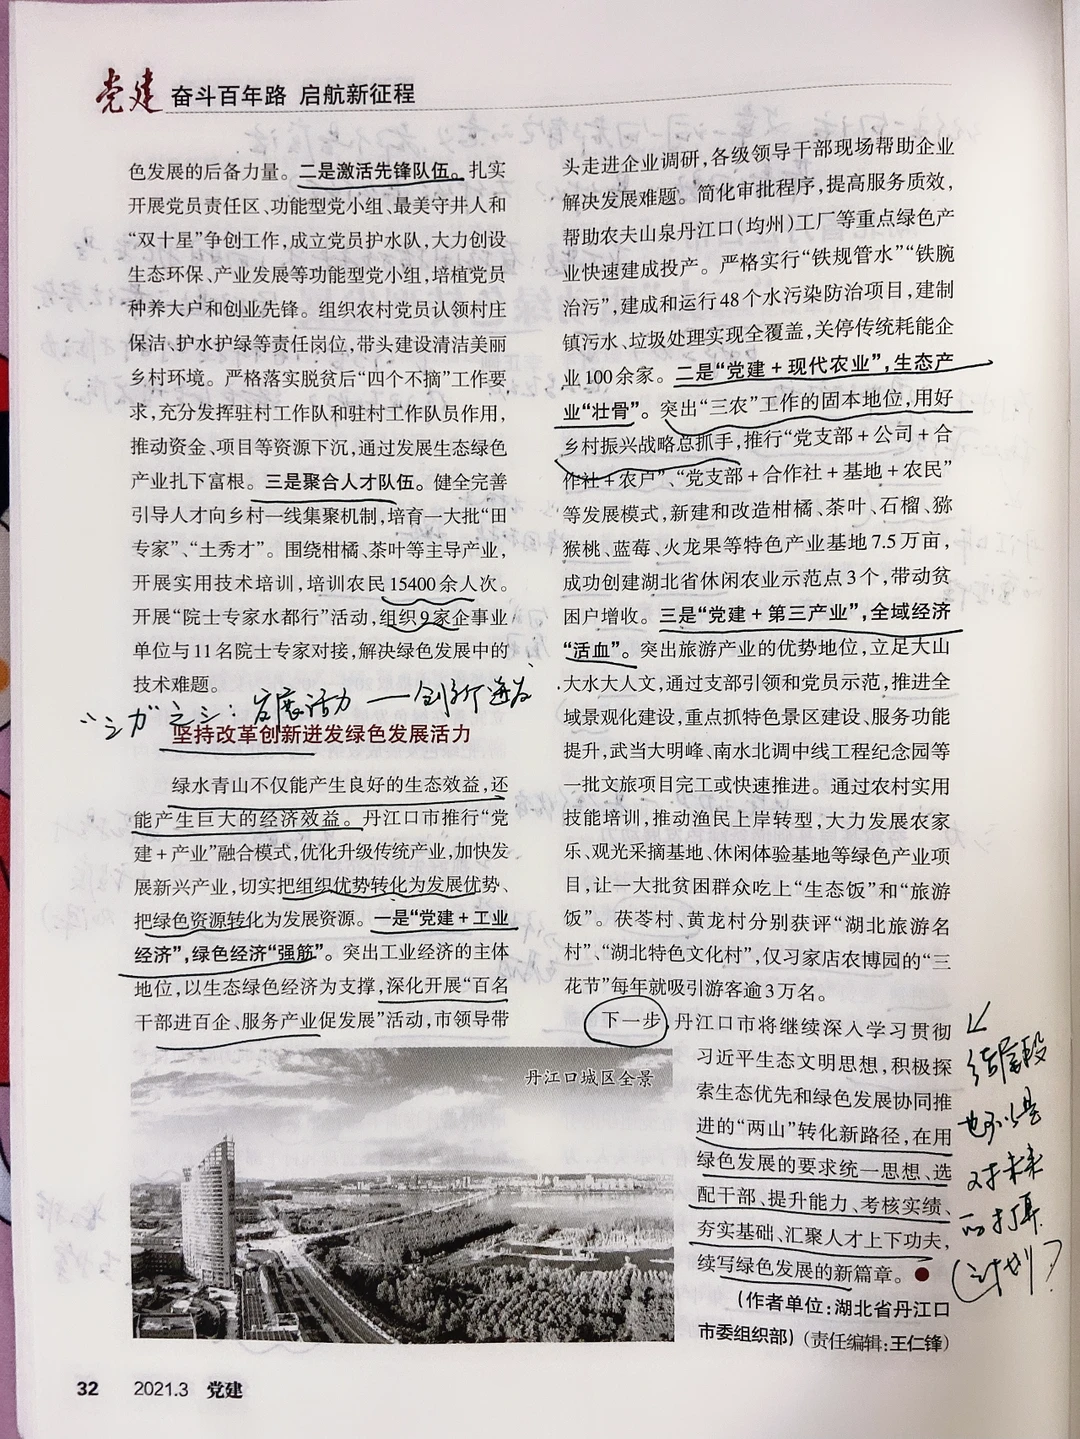 党建 奋斗百年路 启航新征程
色发展的后备力量。二是激活先锋队伍。扎实
开展党员责任区、功能型党小组、最美守井人和
“双十星”争创工作，成立党员护水队，大力创设
生态环保、产业发展等功能型党小组，培植党员
种养大户和创业先锋。组织农村党员认领村庄
保洁、护水护绿等责任岗位，带头建设清洁美丽
乡村环境。严格落实脱贫后“四个不摘”工作要
求，充分发挥驻村工作队和驻村工作队员作用，
推动资金、项目等资源下沉，通过发展生态绿色
产业扎下富根。三是聚合人才队伍。健全完善
引导人才向乡村一线集聚机制，培育一大批“田
专家”、“土秀才”。围绕柑橘、茶叶等主导产业，
开展实用技术培训，培训农民15400余人次。
开展“院士专家水都行”活动，组织9家企事业
单位与11名院士专家对接，解决绿色发展中的
技术难题。
“三力”之三：发展活力——创新迸发
坚持改革创新迸发绿色发展活力
绿水青山不仅能产生良好的生态效益，还
能产生巨大的经济效益。丹江口市推行“党
建＋产业”融合模式，优化升级传统产业，加快发
展新兴产业，切实把组织优势转化为发展优势、
把绿色资源转化为发展资源。一是“党建＋工业
经济”，绿色经济“强筋”。突出工业经济的主体
地位，以生态绿色经济为支撑，深化开展“百名
干部进百企、服务产业促发展”活动，市领导带
头走进企业调研，各级领导干部现场帮助企业
解决发展难题。简化审批程序，提高服务质效，
帮助农夫山泉丹江口(均州)工厂等重点绿色产
业快速建成投产。严格实行“铁规管水”“铁腕
治污”，建成和运行48个水污染防治项目，建制
镇污水、垃圾处理实现全覆盖，关停传统耗能企
业100余家。二是“党建＋现代农业”，生态产
业“壮骨”。突出“三农”工作的固本地位，用好
乡村振兴战略总抓手，推行“党支部＋公司＋合
作社＋农户”、“党支部＋合作社＋基地＋农民”
等发展模式，新建和改造柑橘、茶叶、石榴、猕
猴桃、蓝莓、火龙果等特色产业基地7.5万亩，
成功创建湖北省休闲农业示范点3个，带动贫
困户增收。三是“党建＋第三产业”，全域经济
“活血”。突出旅游产业的优势地位，立足大山
大水大人文，通过支部引领和党员示范，推进全
域景观化建设，重点抓特色景区建设、服务功能
提升，武当大明峰、南水北调中线工程纪念园等
一批文旅项目完工或快速推进。通过农村实用
技能培训，推动渔民上岸转型，大力发展农家
乐、观光采摘基地、休闲体验基地等绿色产业项
目，让一大批贫困群众吃上“生态饭”和“旅游
饭”。茯苓村、黄龙村分别获评“湖北旅游名
村”、“湖北特色文化村”，仅习家店农博园的“三
花节”每年就吸引游客逾3万名。
下一步，丹江口市将继续深入学习贯彻
习近平生态文明思想，积极探
索生态优先和绿色发展协同推
进的“两山”转化新路径，在用
绿色发展的要求统一思想、选
配干部、提升能力、考核实绩、
夯实基础、汇聚人才上下功夫，
续写绿色发展的新篇章。
(作者单位：湖北省丹江口
市委组织部)（责任编辑：王仁锋）
结尾段
也可以是
对未来
的打算
(计划)
丹江口城区全景
32 2021.3 党建